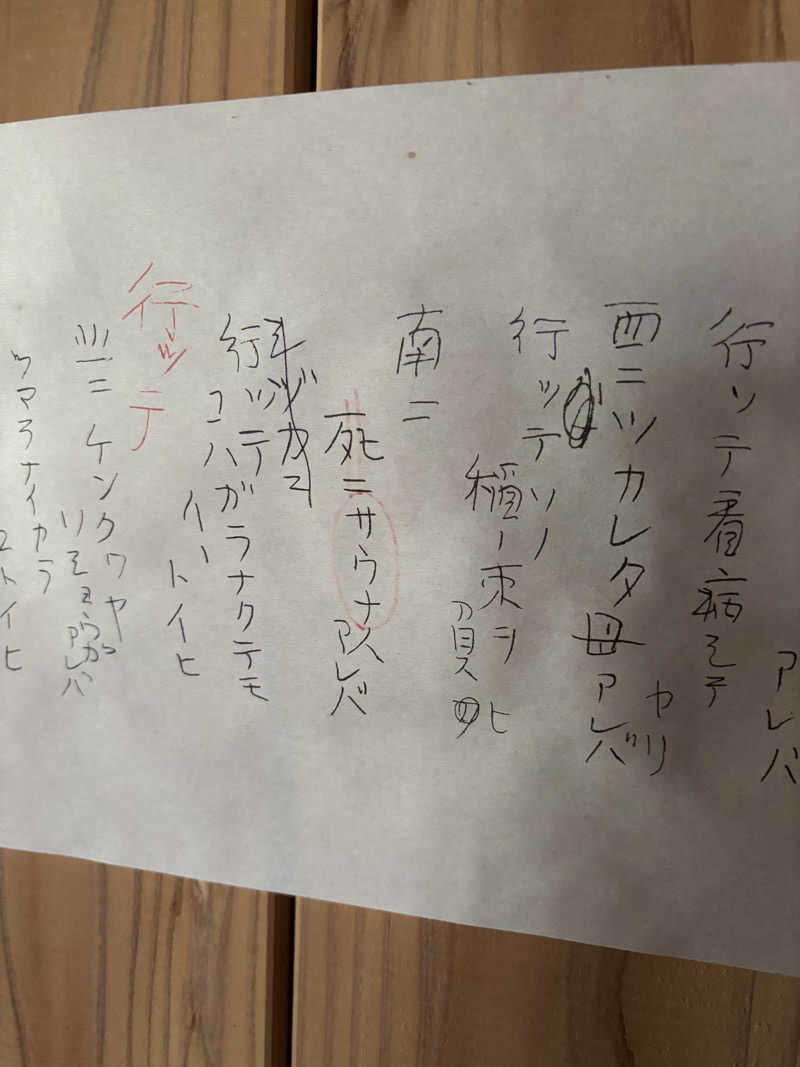 アレバ
行ッテ看病シテ
ヤリ
西ニツカレタ母アレバ
行ッテソノ
稲ノ束ヲ
負ヒ
南ニ
死ニサウナ人アレバ
行ッテコハガラナクテモ
イヽトイヒ
行ッテ
北ニケンクヮヤ
ソショウガアレバ
ツマラナイカラ
トイヒ